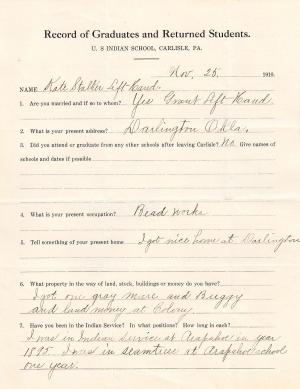 Record of Graduates and Returned Students.
U. S. INDIAN SCHOOL, CARLISLE, PA.
Nov. 25. 1910.
NAME Kate Stalker Left Hand.
1. Are you married and if so to whom? Yes Grant Left Hand.
2. What is your present address? Darlington Okla.
3. Did you attend or graduate from any other schools after leaving Carlisle? No Give names of
schools and dates if possible
4. What is your present occupation? Bead works
5. Tell something of your present home I got nice home at Darlington
6. What property in the way of land, stock, buildings or money do you have?
I got one gray mare and Buggy
and land money at Colony.
7. Have you been in the Indian Service? In what positions? How long in each?
I was in Indian Service at Arapahoe in year
1895. I was in seamtress at Arapahoe school
one year.